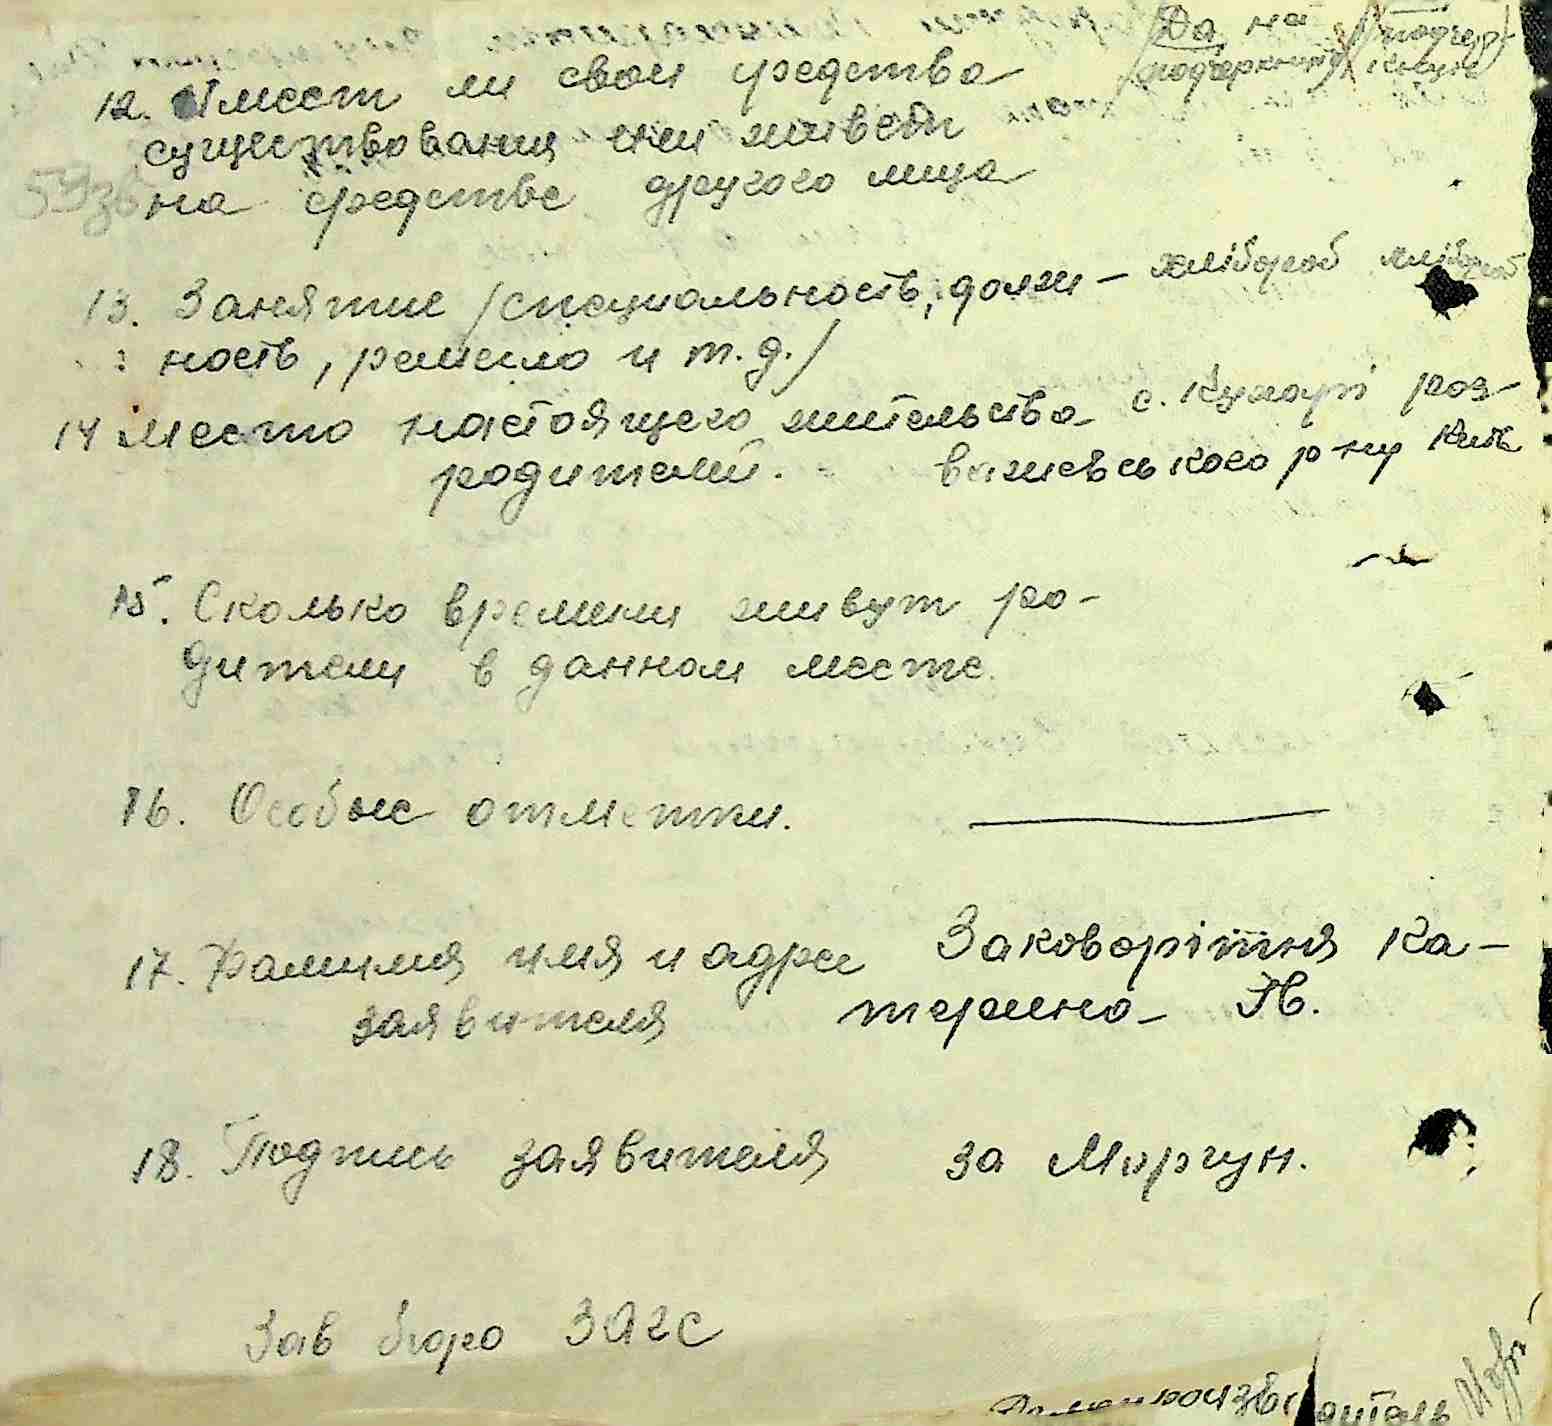 Да на
подчеркнуть
12. Имеет ли свои средства
существования или живет
на средства другого лица
13. Занятие /специальность, долж- хлібороб хлібороб
ность, ремесло и т.д./
14 Место настоящего жительства с. Кухарі роз-
родителей. важевського р-ну Київ
15. Сколько времени живут ро-
дители в данном месте.
16. Особые отметки. —
17. Фамилия имя и адрес Заковорітня Ка-
заявителя терина Ів.
18. Подпись заявителя за Моргун.
Зав бюро ЗАГС